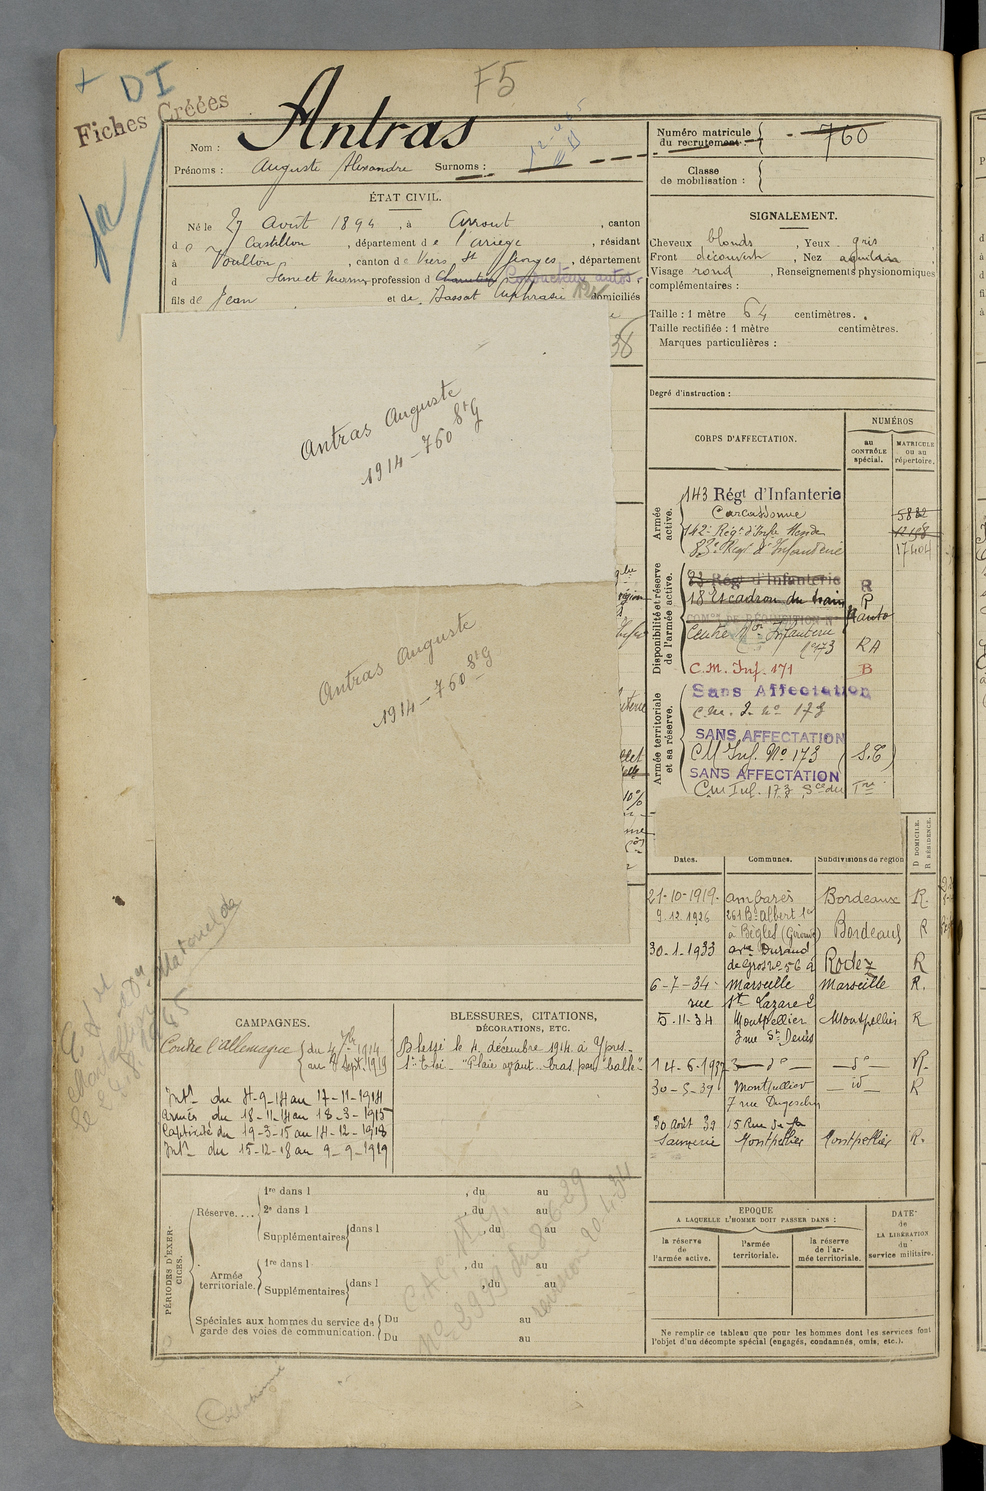 + DI
F5
Fiches Créées
Nom : Antras
Prénoms : Auguste Alexandre Surnoms :
Numéro matricule du recrutement : 760
Classe de mobilisation :
ÉTAT CIVIL.
Né le 27 Avril 1894, à Arrout, canton
d e Castillon, département de l'ariège, résidant
à Voulton, canton de Viers St Georges, département
d Seine et Marne profession d Conducteur autos
fils de Jean et de Dassat Euphrasie domiciliés
38
SIGNALEMENT.
Cheveux blonds, Yeux gris
Front découvert, Nez aquilain
Visage rond, Renseignements physionomiques
complémentaires :
Taille : 1 mètre 64 centimètres.
Taille rectifiée : 1 mètre centimètres.
Marques particulières :
Degré d'instruction :
Antras Auguste
1914 - 760 St G
Antras Auguste
1914 - 760 St G
CORPS D'AFFECTATION.
NUMÉROS
au CONTRÔLE spécial.
MATRICULE ou au répertoire.
Armée active.
143 Régt d'Infanterie
Carcassonne
5832
142e Régt d'Infie Mende
12198
83e Régt d'Infanterie
17404
Disponibilité et réserve de l'armée active.
23 Régt d'Infanterie R
18 Escadron du train R
COMon DE RÉQUISITION N° R auto
Centre Mor Infanterie
n°173 RA
C.M. Inf. 171 B
Armée territoriale et sa réserve.
Sans Affectation
C.M. I. n° 173
SANS AFFECTATION
CM Inf. N° 173 (S.T)
SANS AFFECTATION
Cm Inf. 173 Sce du Tre
Dates. Communes. Subdivisions de région
D DOMICILE. R RÉSIDENCE.
21-10-1919 ambarès Bordeaux R.
9.12.1926 261 Bd Albert 1er
à Bègles (Gironde) Bordeaux R
30-1-1933 ave Durand
de Gros n° 56 à Rodez R
6-7-34 Marseille Marseille R.
rue St Lazare 2
5-11-34 Montpellier Montpellier R
3 rue St Denis
14-6-1937 3 — d° — — d° — R.
30-5-39 Montpellier — id — R
7 rue Duguesclin
30 août 39 15 Rue
Montpellier Montpellier R.
CAMPAGNES.
Contre l'allemagne { du 4 7bre 1914
au 9 Sept. 1919
Intr du 4-9-14 au 17-11-1914
Armées du 18-11-14 au 18-3-1915
Captivité du 19-3-15 au 14-12-1918
Intr du 15-12-18 au 9-9-1919
BLESSURES, CITATIONS, DÉCORATIONS, ETC.
Blessé le 4 décembre 1914 à Ypres
"Plaie avant-bras par balle"
PÉRIODES D'EXERCICES.
Réserve....
1re dans l , du au
2e dans l , du au
Supplémentaires dans l , du au
Armée territoriale.
1re dans l , du au
Supplémentaires dans l , du au
Spéciales aux hommes du service de garde des voies de communication.
Du au
Du au
C.A.C. St G.
N° 2939 du 8-6-39
20.4.34
EPOQUE
A LAQUELLE L'HOMME DOIT PASSER DANS :
la réserve de l'armée active.
l'armée territoriale.
la réserve de l'armée territoriale.
DATE de LA LIBÉRATION du service militaire.
Ne remplir ce tableau que pour les hommes dont les services font
l'objet d'un décompte spécial (engagés, condamnés, omis, etc.).